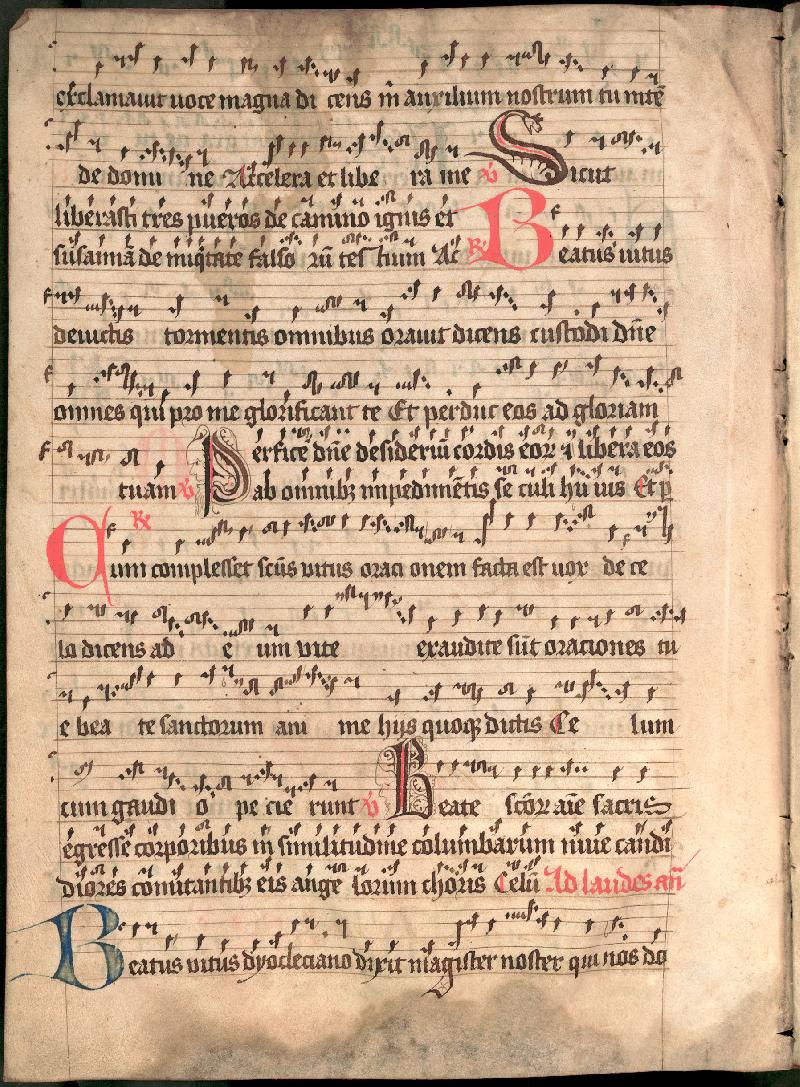 exclamauit uoce magna di cens in auxilium nostrum tu inte
de domi ne Accelera et libe ra me v̉ Sicut
liberasti tres pueros de camino ignis et
susannā de iniq̄tate falso rū tes tium Ac R̷ Beatus uitus
deuictis tormentis omnibus orauit dicens custodi dn̄e
omnes qui pro me glorificant te Et perduc eos ad gloriam
tuam v̉ Perfice dn̄e desideriū cordis eoꝝ ⁊ libera eos
ab omnibꝫ impedimētis se culi hu ius Et p̄
R̷ Cum complesset scūs vitus oraci onem facta est uox de ce
lo dicens ad e um vite exaudite sūt oraciones tu
e bea te sanctorum ani me hijs quoqꝫ dictis Ce lum
cum gaudi o pe tie runt v̉ Beate scōꝝ aīe sacris
egresse corporibus in similitudine columbarum niue candi
diores comitantibꝫ eis ange lorum choris Celū Ad laudes an̄
Beatus vitus dyocleciano dixit magister noster qui nos do